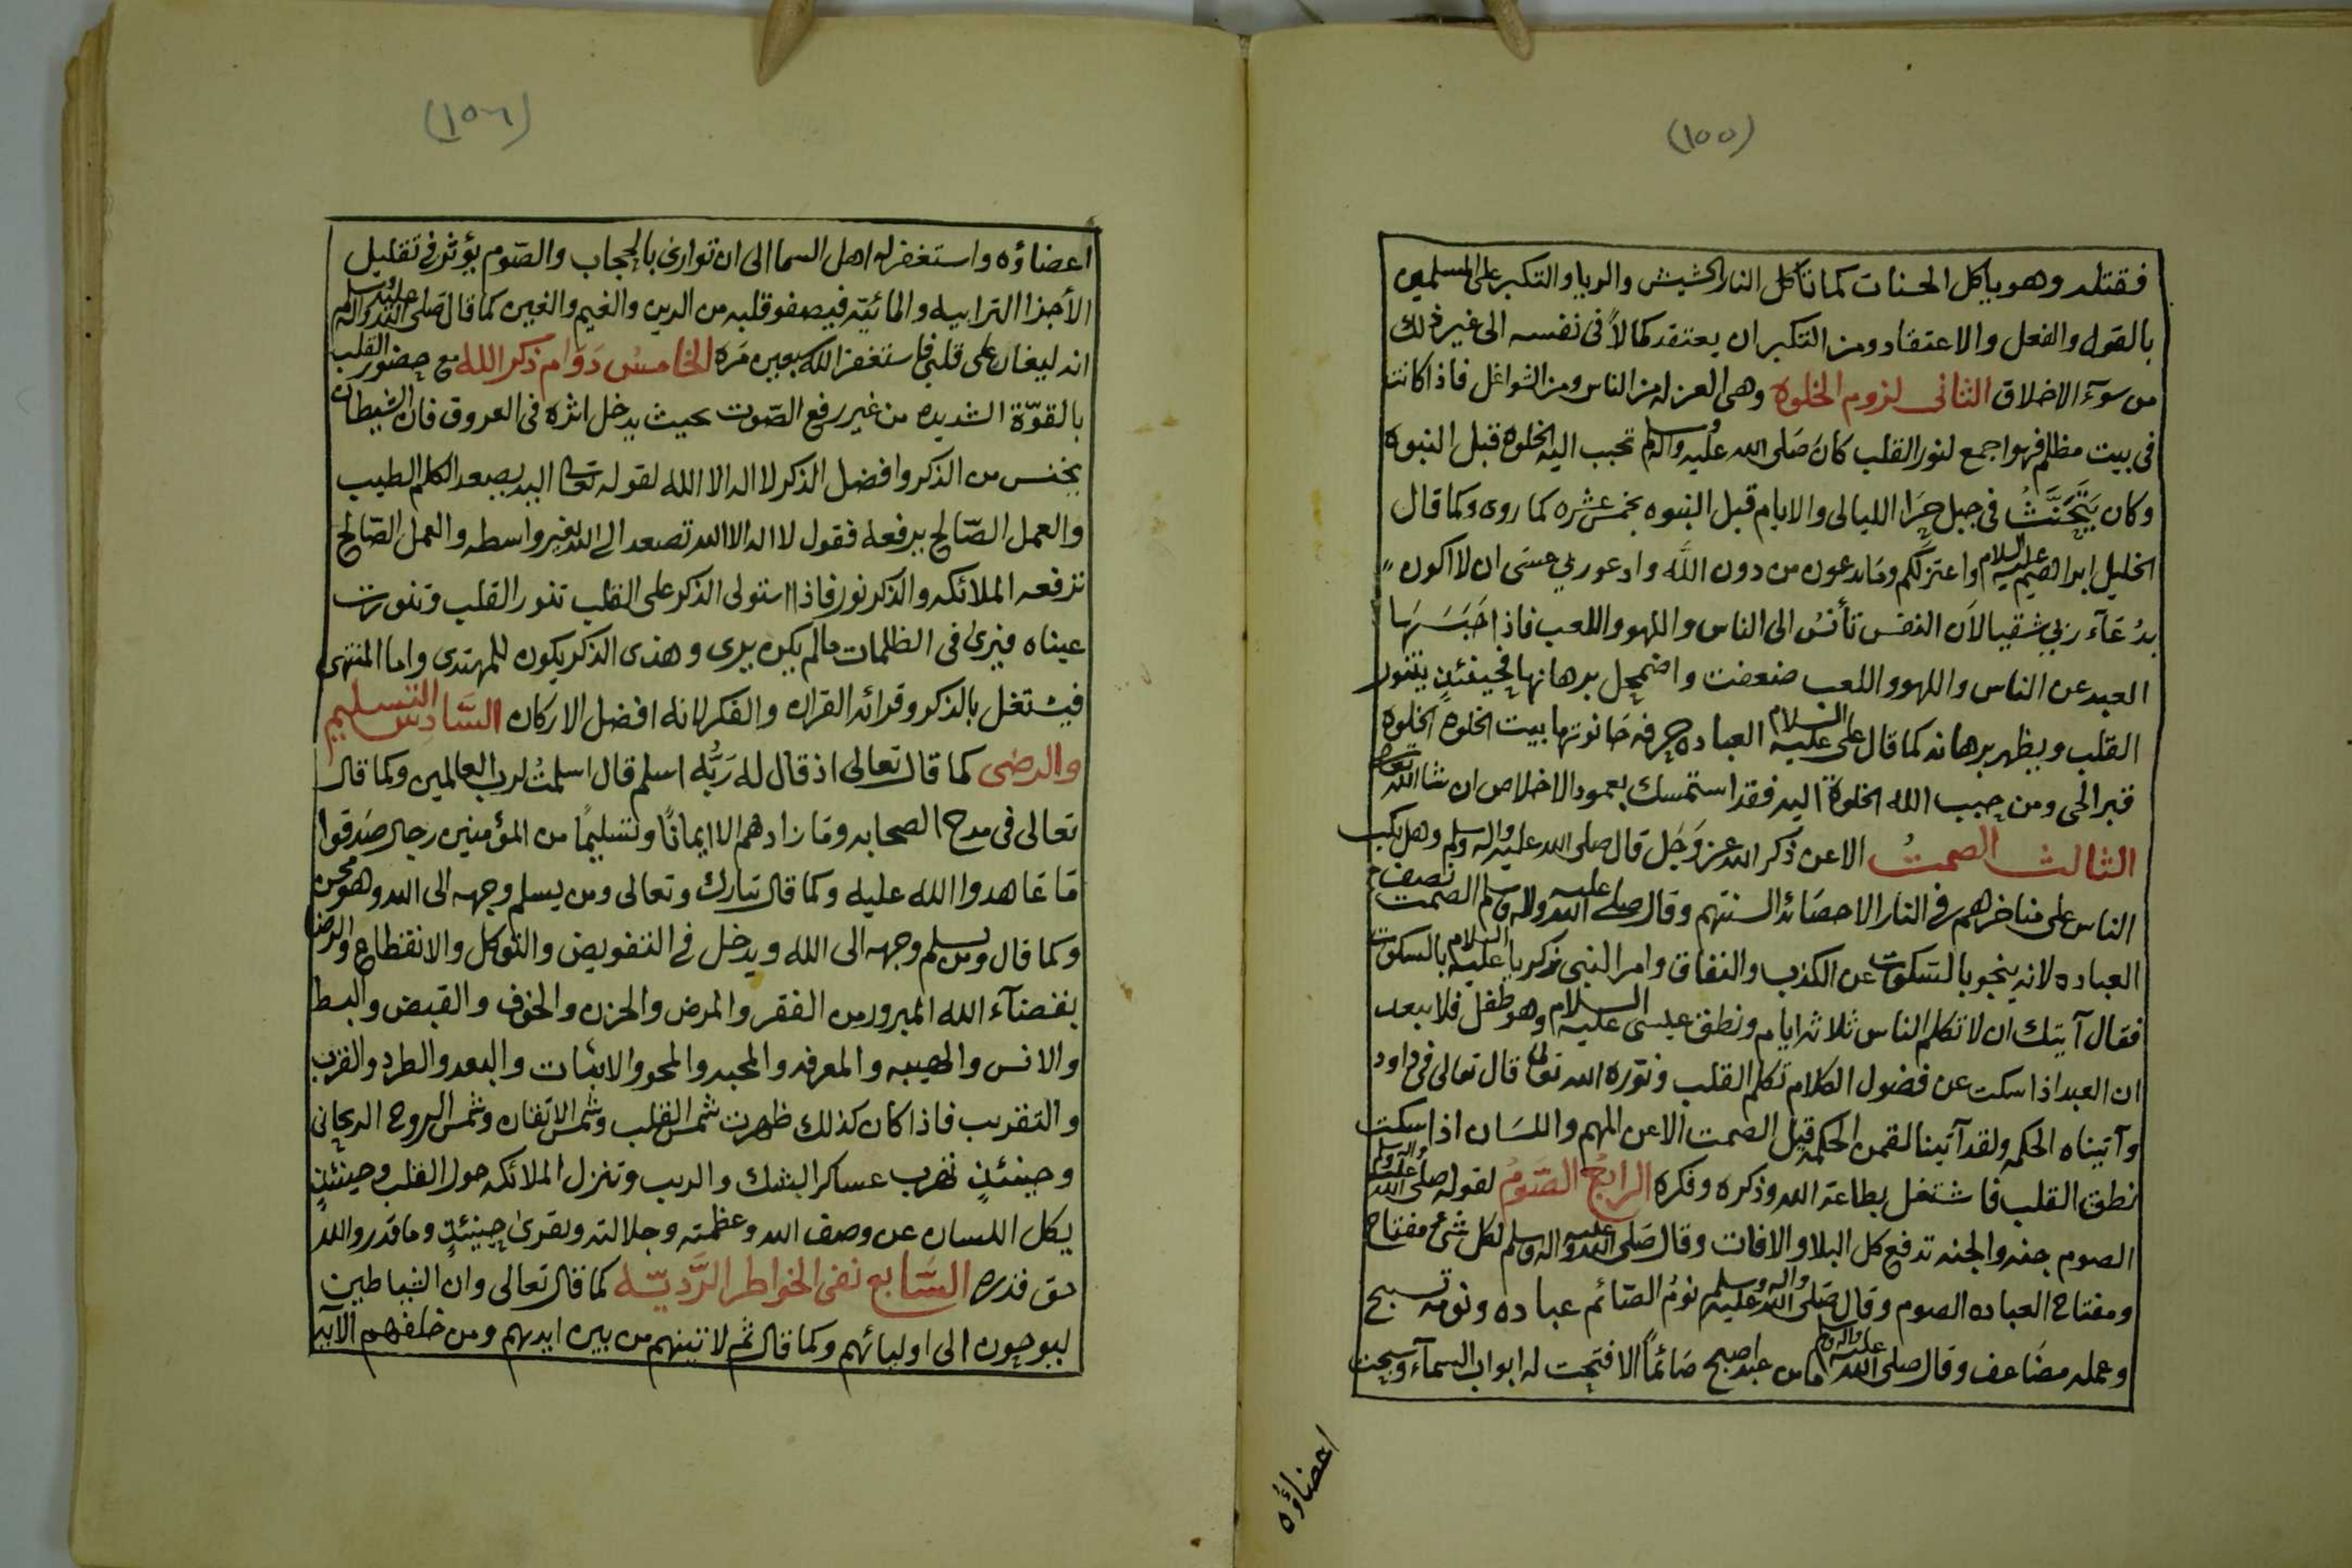 (١٥٥)
فقتله وهو ياكل الحسنات كما تأكل النار الحشيش والريا والتكبر على المسلمين
بالقول والفعل والاعتقاد ومن التكبر ان يعتقد كمالاً فى نفسه الى غير ذلك
من سوٓء الاخلاق الثانى لزوم الخلوه وهى العزله من الناس ومن الشواغل فاذا كانت
فى بيت مظلم فهو اجمع لنور القلب كان صَلى الله عليه واله وسلم تحبب اليه الخلوه قبل النبوه
وكان يَتَحَنَّثُ فى جبل حِرَا الليالى والايام قبل النبوه بخمس عشره كما روى وكما قال
الخليل ابراهيم عليه السلام واعتزلكم وما تدعون من دون الله وادعو ربي عسَى ان لا اكون
بدُعَآء ربي شقيا لاَن النفس تأنسُ الى الناس واللهو واللعب فاذا حَبَسَهَا
العبد عن الناس واللهو واللعب ضعفت واضمحل برهانها فحينئذٍ يتنور
القلب ويظهر برهانه كما قال على عليه السلام العباده حرفه حَانوتها بيت الخلوه الخلوه
قبر الحى ومن حبب الله الخلوة اليه فقد استمسك بعمود الاخلاص ان شا الله تعالى
الثالث الصمتُ الا عن ذكر الله عز وَجَل قال صلى الله عليه واله وسلم وهل يكب
الناس على مناخرهم فى النار الا حصَائد السنتهم وقال صلى الله عليه واله وسلم الصمت نصف
العباده لانه ينجو بالسكوت عن الكذب والنفاق وامر النبى زكريا عليه السلام بالسكوت
فقال آيتك ان لا تكلم الناس ثلاثة ايام ونطق عيسى عليه السلام وهو طفل فلا يبعد
ان العبد اذا سكت عن فضول الكلام تكلم القلب ونوّره الله تعالى قال تعالى فى داود
وآتيناه الحكمه ولقد آتينا لقمن الحكمه قيل الصمت الا عن المهم واللسَان اذا سكت
نطق القلب فاشتغل بطاعة الله وذكره وفكره الرابعُ الصَّومُ لقوله صلى الله عليه واله وسلم
الصوم جنه والجنه تدفع كل البلا والافات وقال صَلى الله عليه واله وسلم لكل شئ مفتاح
ومفتاح العباده الصوم وقال صَلى الله عليه واله وسلم نومُ الصّائم عباده ونومه تسبيح
وعمله مضَاعف وقال صلى الله عليه واله وسلم ما من عبد اصبح صَائماً الا فتحت له ابواب السمآء وسبحت
اعضاؤه
(١٥٦)
اعضاؤه واستغفر له اهل السما الى ان توارى بالحجاب والصّوم يؤثر فى تقليل
الأجزا الترابيه والمائيّه فيصفو قلبه من الرين والغيم والغين كما قال صَلى الله عليه واله وسلم
انه ليغان على قلبى فاستغفر الله سبعين مَره الخامسُ دَوَام ذكر الله مع حضور القلب
بالقوّة الشديده من غير رفع الصّوت بحيث يدخل اثره فى العروق فان الشيطان
يخنس من الذكر وافضل الذكر لا اله الا الله لقوله تعالى اليه يصعد الكلم الطيب
والعمل الصّالح يرفعه فقول لا اله الا الله تصعد الى الله بغير واسطه والعمل الصّالح
ترفعه الملائكه والذكر نور فاذا استولى الذكر على القلب تنور القلب وتنورت
عيناه فيرى فى الظلمات ما لم يكن يرى وهذى الذكر يكون للمهتدى واما المنتهى
فيشتغل بالذكر وقرائه القران والفكر لانه افضل الاركان السَّادِس التسليم
والرضى كما قال تعالى اذ قال له رَبُّه اسلم قال اسلمتُ لرب العالمين وكما قال
تعالى فى مدح الصحابه ومَا زادهم الا ايمانًا وتسليمًا من المؤمنين رجال صَدقوا
مَا عَاهدوا الله عليه وكما قال تبارك وتعالى ومن يسلم وجهه الى الله وهو محسن
وكما قال ومن يسلم وجهه الى الله ويدخل فى التفويض والتوكل والانقطاع والرضا
بقضآء الله المبرور من الفقر والمرض والحزن والخوف والقبض والبسط
والانس والهيبه والمعرفه والمحبه والمحو والاثبات والبعد والطرد والقرب
والتقريب فاذا كان كذلك ظهرت شمس القلب وشمس الاتقان وشمس الروح الريحانى
وحينئذٍ تهرب عساكر الشك والريب وتنزل الملائكه حول القلب وحينئذٍ
يكل اللسان عن وصف الله وعظمته وجلالته ويقرئ حينئذٍ وما قدروا الله
حق قدره السَّابع نفى الخواطر الرَّديّه كما قال تعالى وان الشياطين
ليوحون الى اوليائهم وكما قال ثم لاتينهم من بين ايديهم ومن خلفهم الآيه